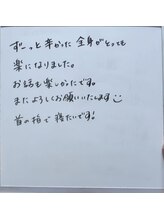 ずーっと辛かった全身がとっても
楽になりました。
お話も楽しかったです。
またよろしくお願いいたします☺
首の指で寝たいです!